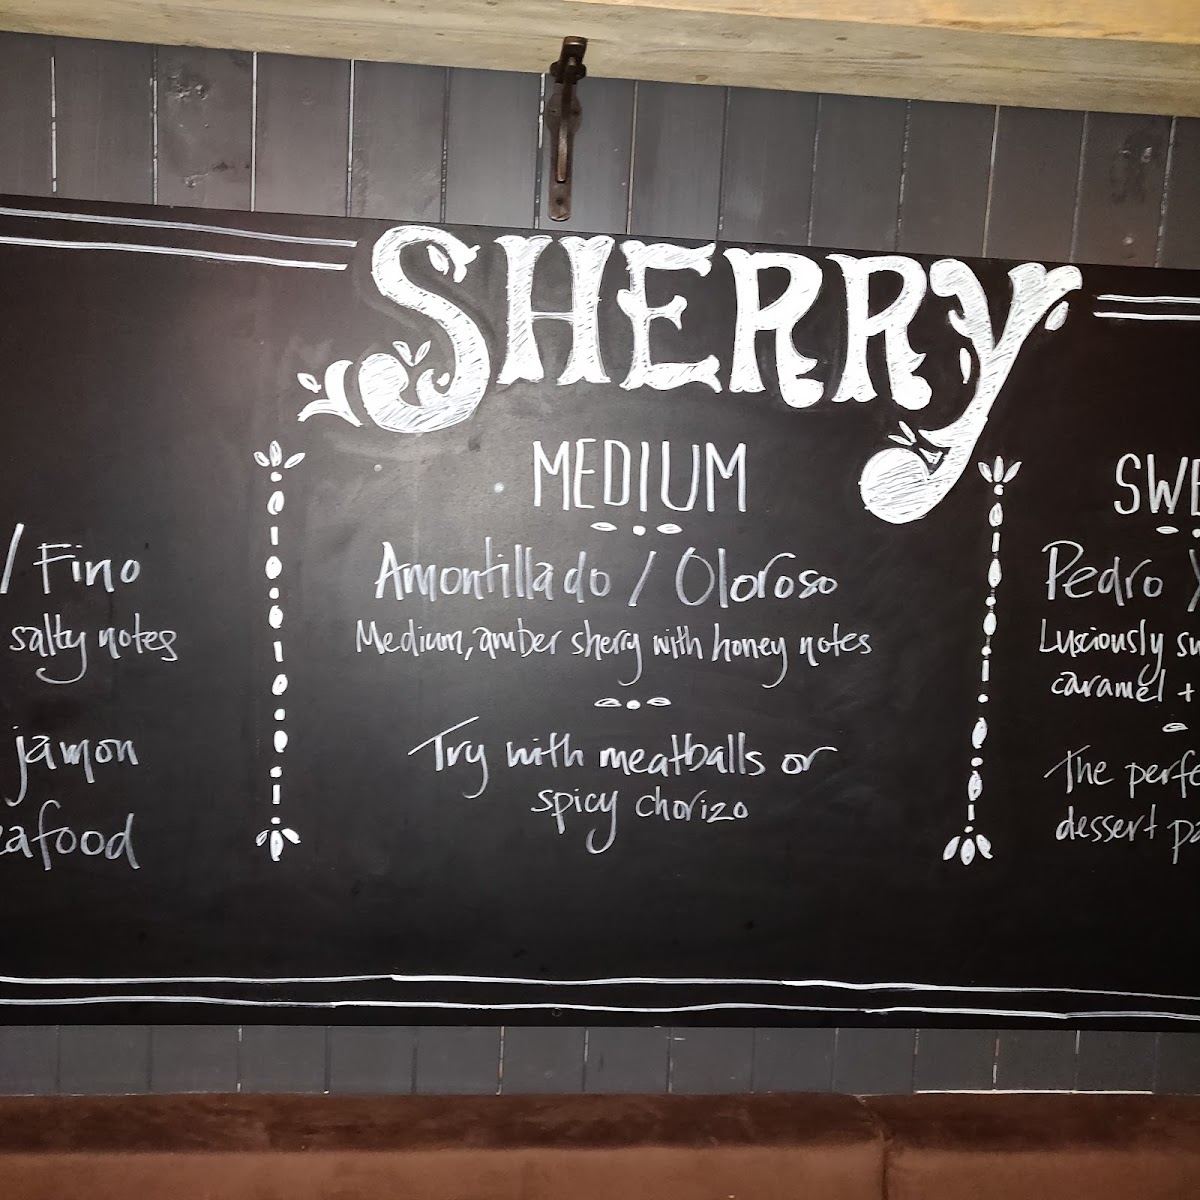 SHERRY
/ Fino
salty notes
jamon
MEDIUM
Amontillado / Oloroso
Medium, amber sherry with honey notes
Try with meatballs or
spicy chorizo
Pedro
Lusciously
caramel +
The
dessert